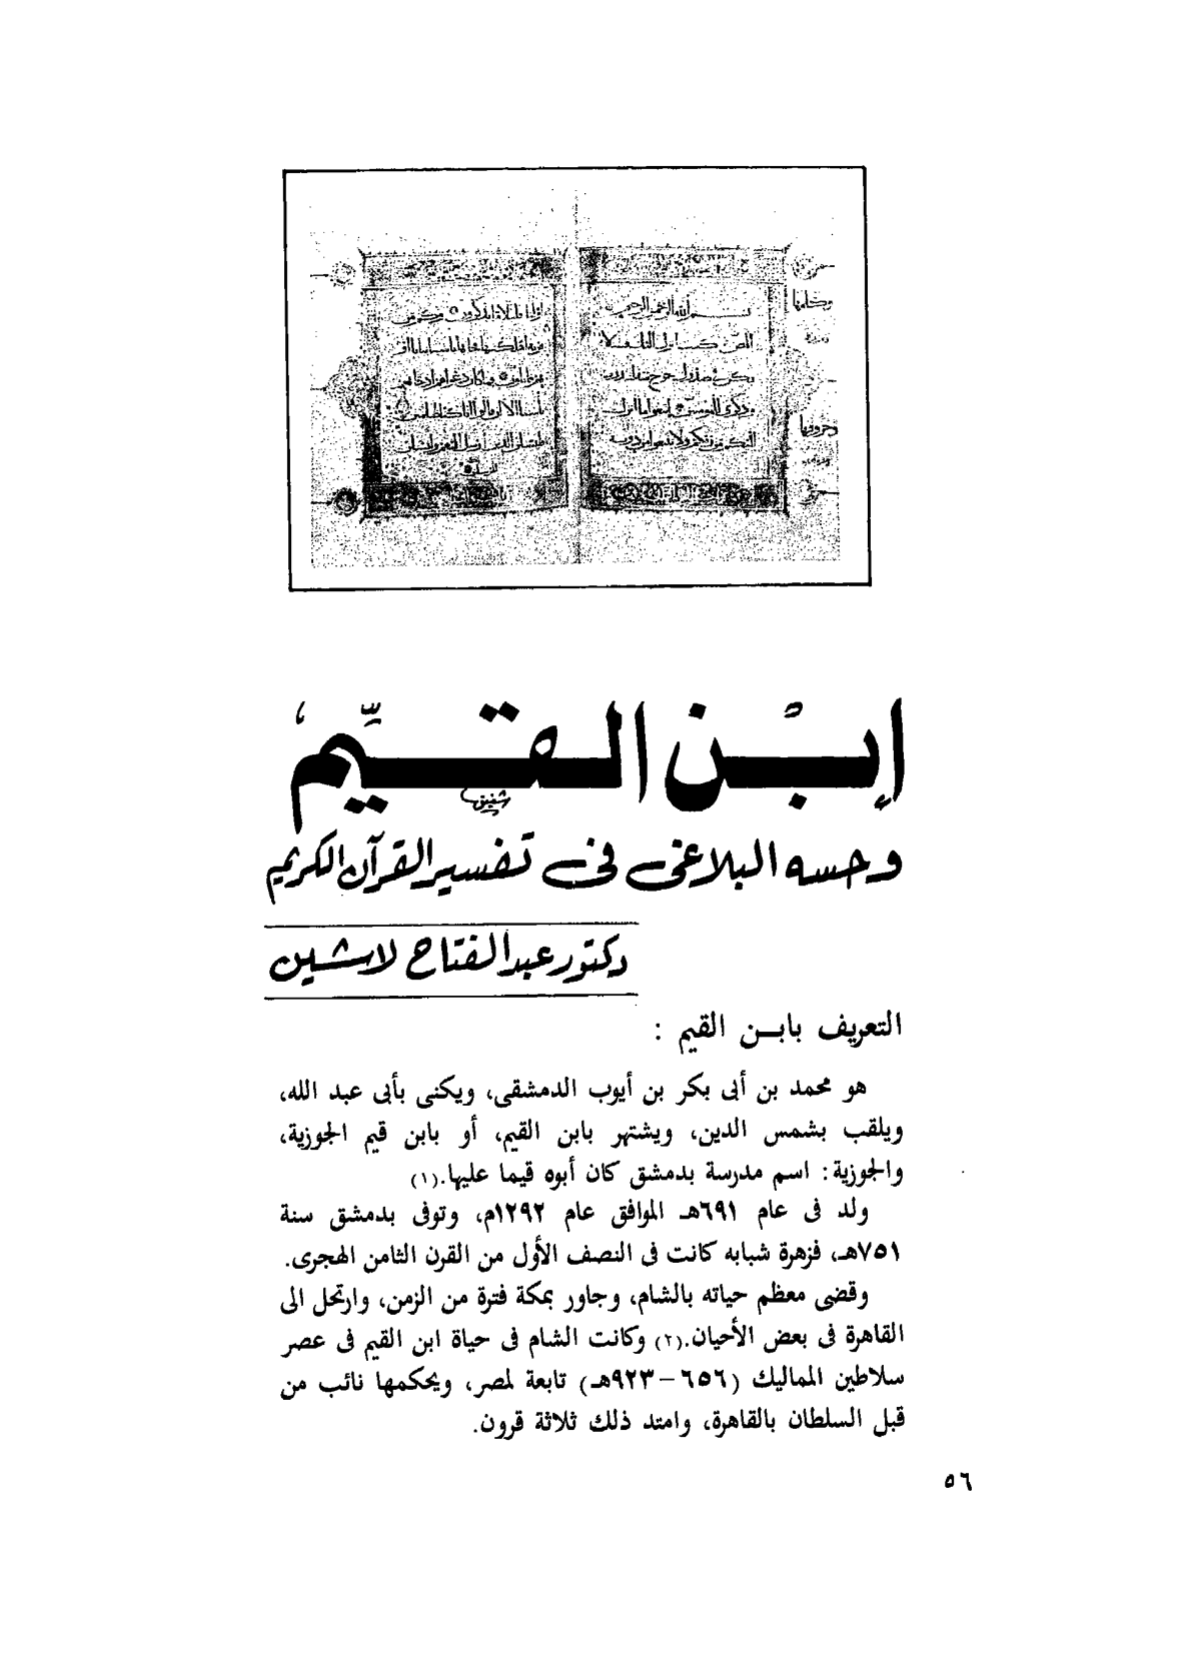 بسم الله الرحمن الرحيم
ابْن القيِّم
شفيق
وحسه البلاغى فى تفسير القرآن الكريم
دكتور عبد الفتاح لاشين
التعريف بابـن القيم :
هو محمد بن أبى بكر بن أيوب الدمشقى، ويكنى بأبى عبد الله،
ويلقب بشمس الدين، ويشتهر بابن القيم، أو بابن قيم الجوزية،
والجوزية: اسم مدرسة بدمشق كان أبوه قيما عليها.(١)
ولد فى عام ٦٩١هـ الموافق عام ١٢٩٢م، وتوفى بدمشق سنة
٧٥١هـ، فزهرة شبابه كانت فى النصف الأول من القرن الثامن الهجرى.
وقضى معظم حياته بالشام، وجاور بمكة فترة من الزمن، وارتحل الى
القاهرة فى بعض الأحيان.(٢) وكانت الشام فى حياة ابن القيم فى عصر
سلاطين المماليك (٦٥٦–٩٢٣هـ) تابعة لمصر، ويحكمها نائب من
قبل السلطان بالقاهرة، وامتد ذلك ثلاثة قرون.
٥٦